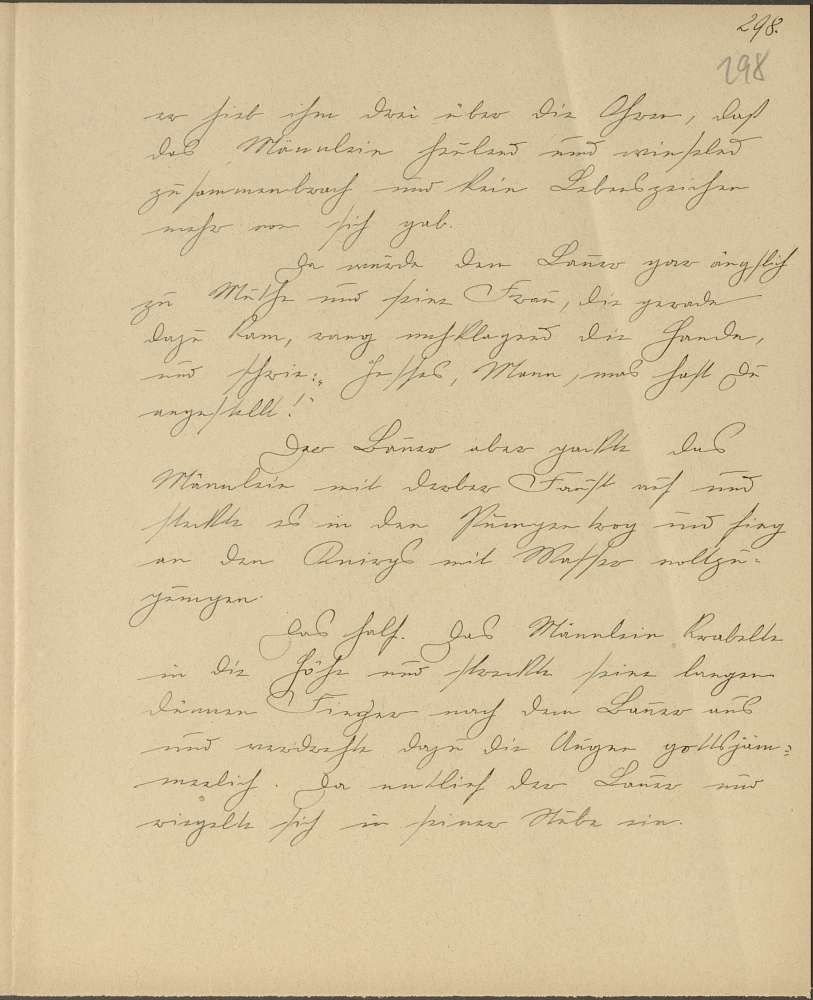 298.
298
er hieb ihm drei über die Ohren, daß
das Männlein heulend und winselnd
zusammenbrach und kein Lebenszeichen
mehr von sich gab.
Da wurde dem Bauer gar ängstlich
zu Muthe und seine Frau, die gerade
dazu kam, rang wehklagend die Hände,
und schrie: „Jesses, Mann, was hast Du
angestellt!"
Der Bauer aber packte das
Männlein mit derber Faust auf und
steckte es in den Pumpentrog und fing
an den Knirps mit Wasser vollzu-
pumpen.
Das half. Das Männlein krabelte
in die Höhe und streckte seine langen
dünnen Finger nach dem Bauer aus
und verdrehte dazu die Augen gottsjäm-
merlich. Da entlief der Bauer und
riegelte sich in seiner Stube ein.